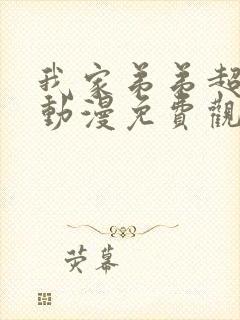 我家弟弟超
動漫免費觀
荧幕